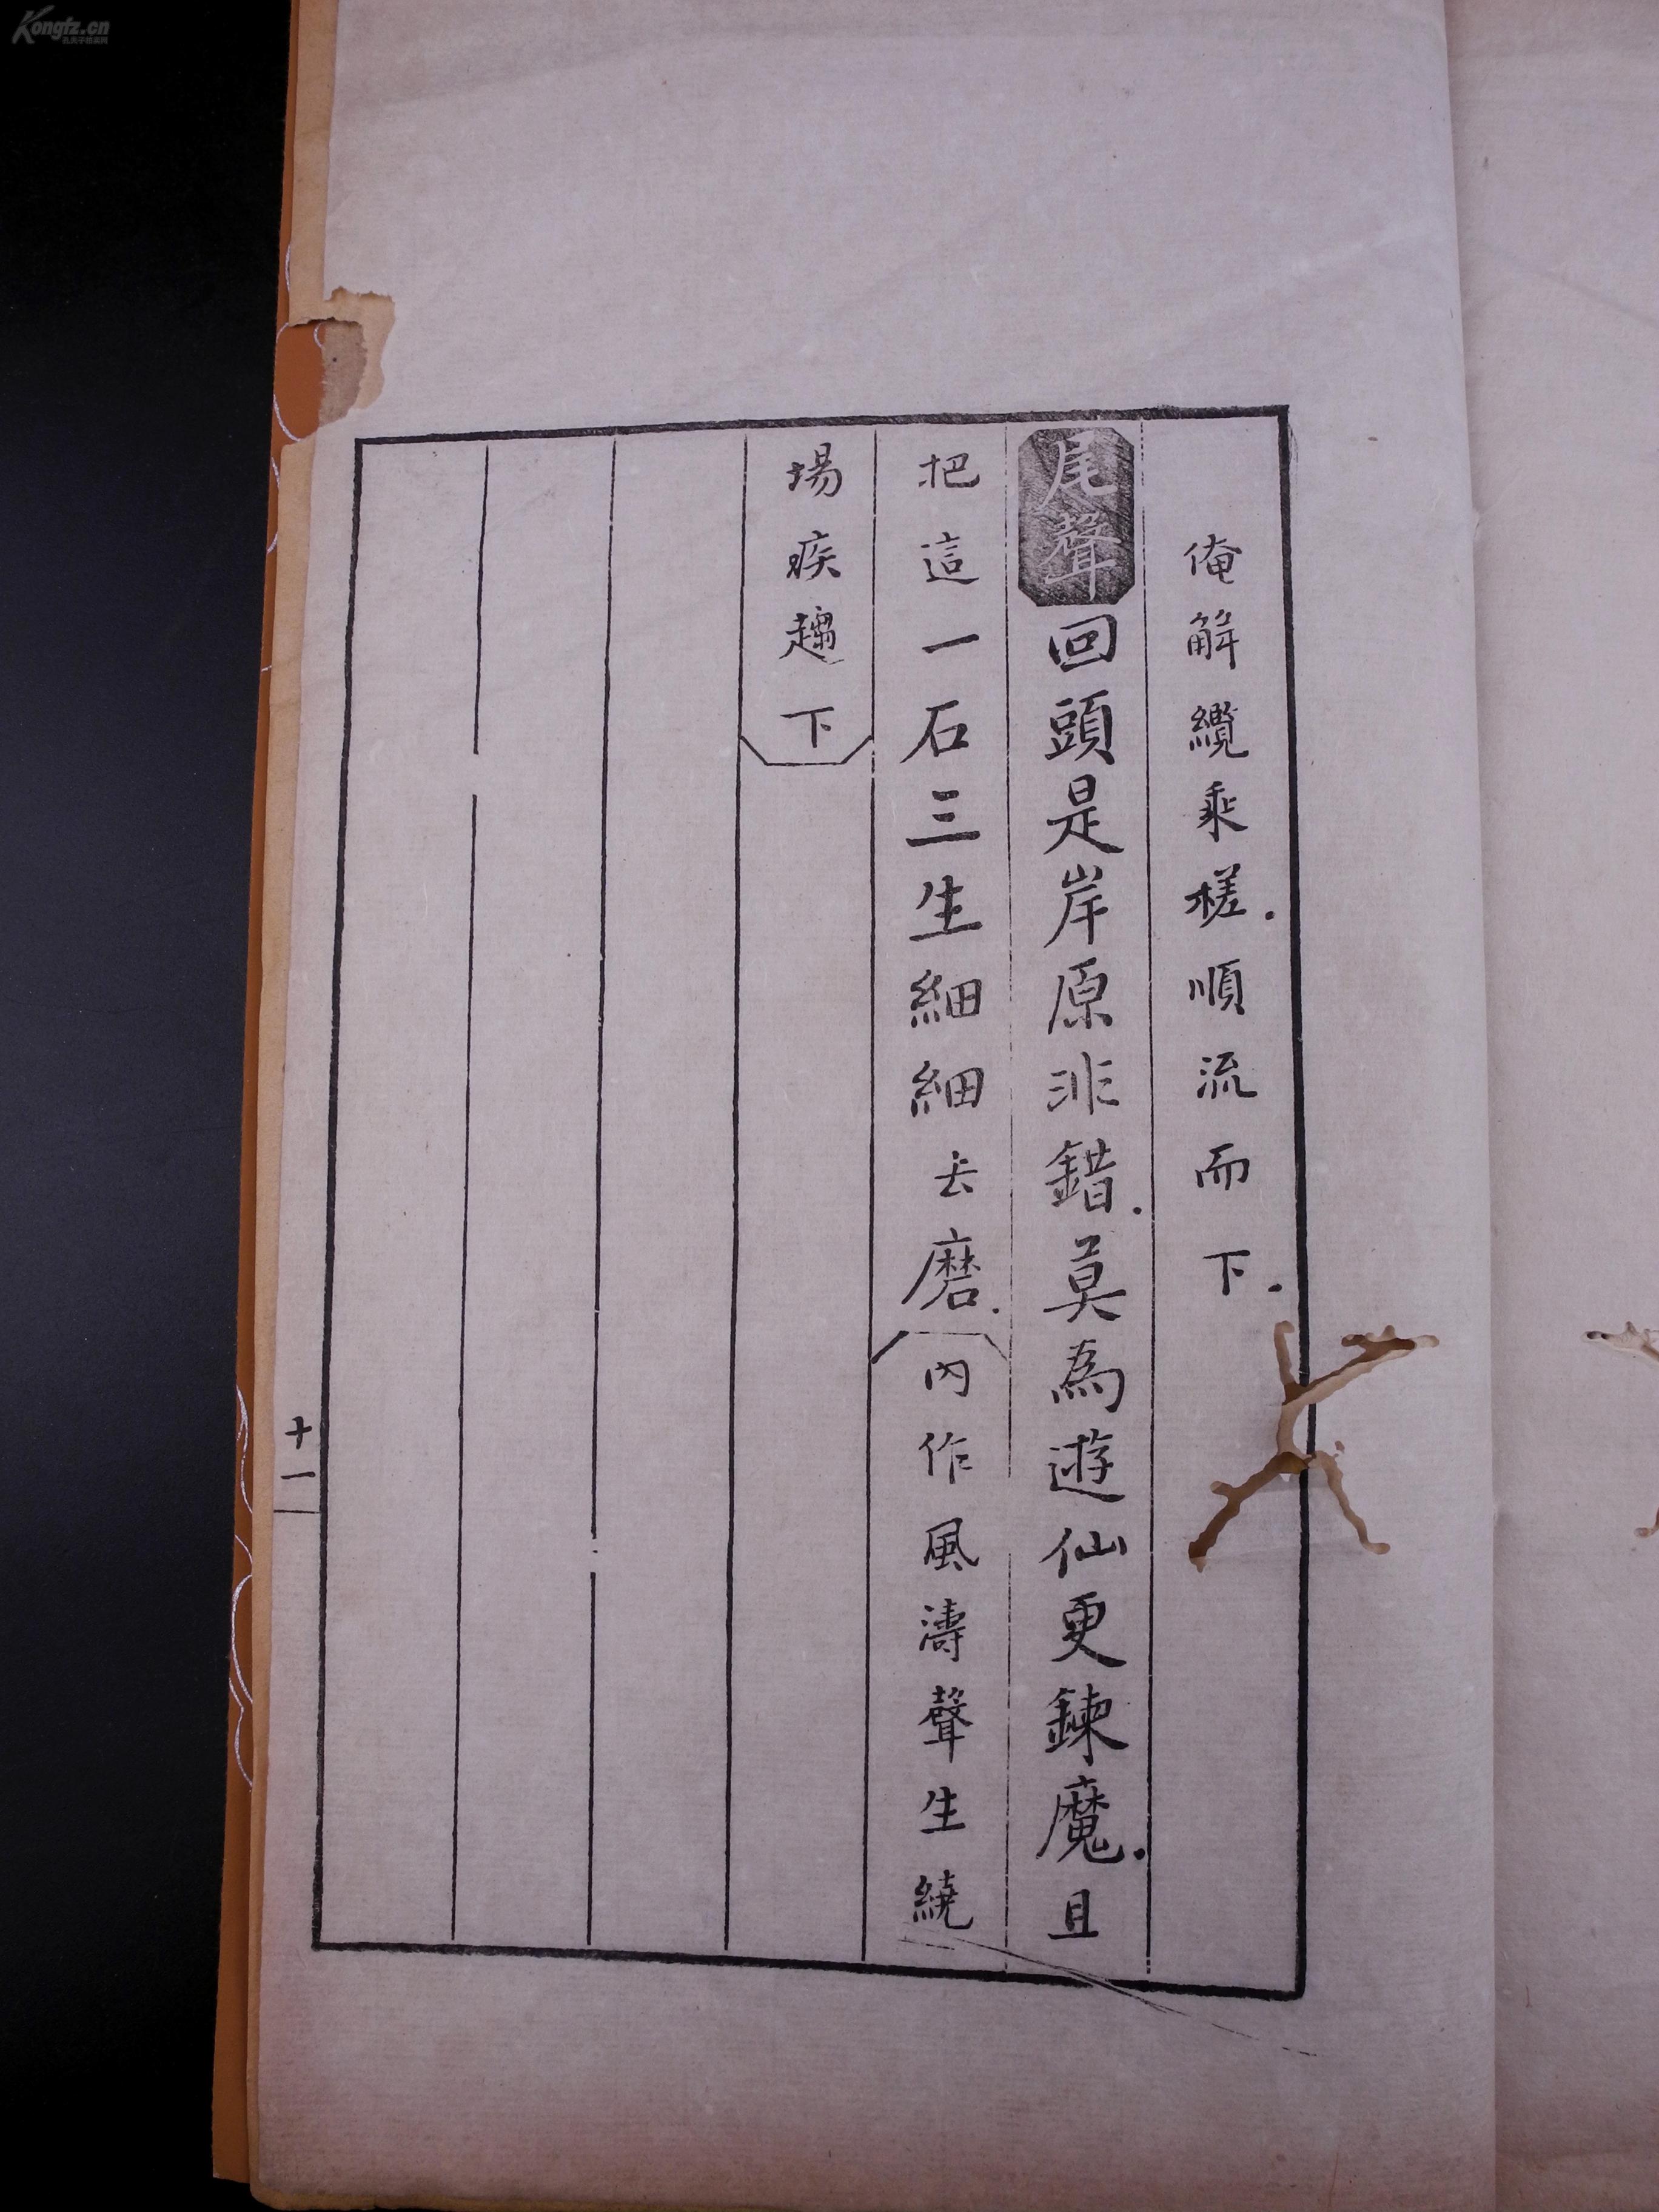 俺解纜乘槎.順流而下.
尾聲回頭是岸原非錯.莫為遊仙更鍊魔.且
把這一石三生細細去磨.內作風濤聲生繞
場疾趨下
十一
Kongfz.cn
孔夫子旧书网